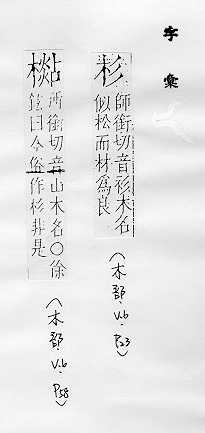 字彙
杉 師銜切音衫木名
似松而材爲良
(木部, V.6, P.23)
㯳 所銜切音山木名○徐
鉉曰今俗作杉非是
(木部, V.6, P.58)